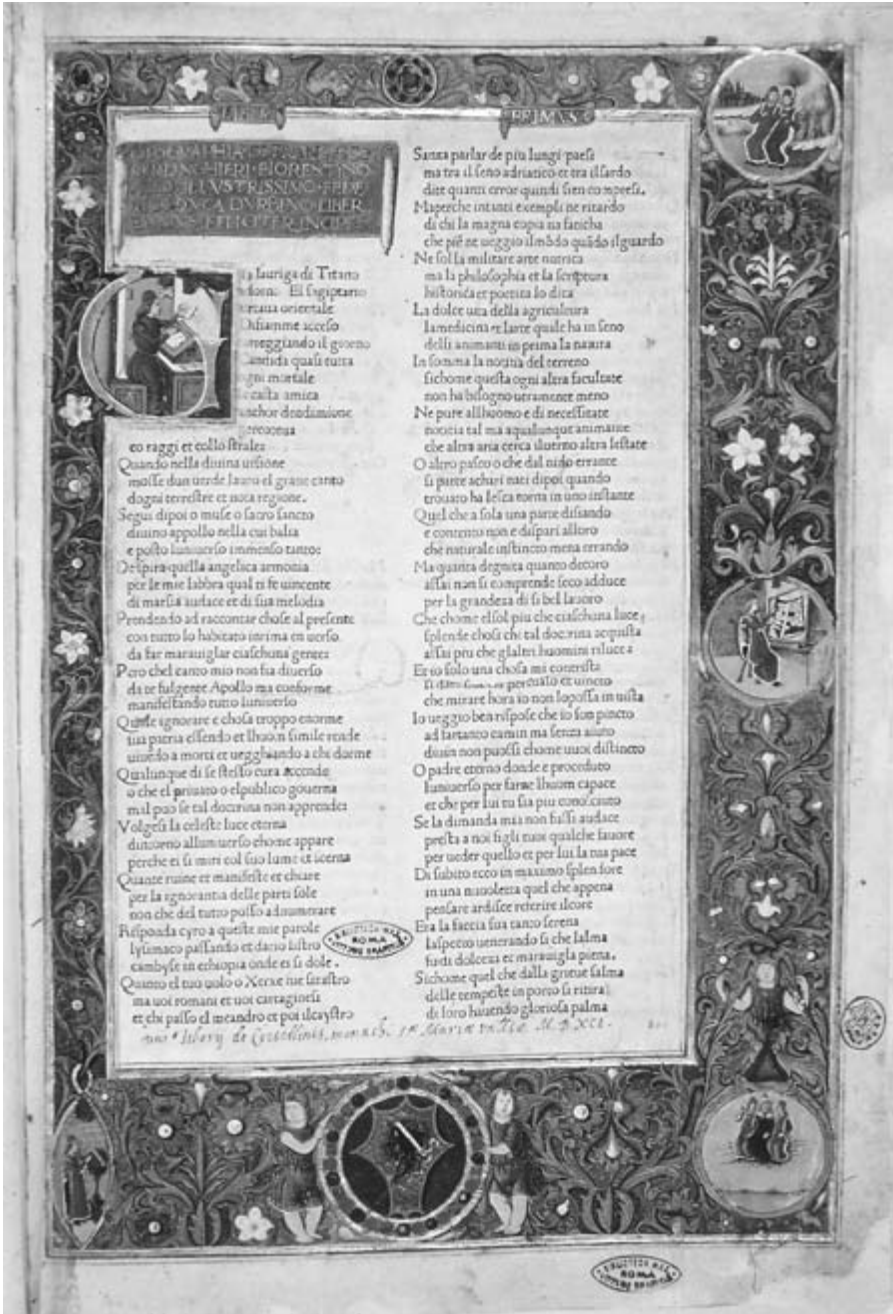 LIBER
PRIMVS
GEOGRAPHIA DI FRANCESCO
BERLINGHIERI FIORENTINO
ILLVSTRISSIMO FEDE
DVCA DVRBINO LIBER
FELICITER INCIPIT
la lauriga di Titano
El sagiptario
orientale
Di fiamme acceso
il giorno
Candida quasi tutta
ogni mortale
casta amica
anchor dendimione
percoteva
co raggi et collo strale:
Quando nella diuina uisione
mosse dun uerde lauro el graue canto
dogni terrestre et nota regione.
Segui dipoi o muse o sacro sancto
diuino appollo nella cui balia
e posto luniuerso immenso tanto:
Despira quella angelica armonia
per le mie labbra qual ti fe uincente
di marsia audace et di sua melodia
Prendendo ad raccontar chose al presente
con tutto lo habitato in rima en uerso
da far marauiglar ciaschuna gente:
Pero chel canto mio non fia diuerso
da te fulgente Apollo ma conforme
manifestando tutto luniuerso
ignorare e chosa troppo enorme
sua patria essendo et lhuom simile rende
uiuendo a morti et uegghiando a chi dorme
Qualunque di se stesso cura accende
o che el priuato o elpublico gouerna
mal puo se tal doctrina non apprende:
Volgesi la celeste luce eterna
dintorno alluniuerso chome appare
perche ei si miri col suo lume et scerna
Quante ruine et manifeste et chiare
per la ignorantia delle parti sole
non che del tutto posso adnumerare
Risponda cyro a queste mie parole
lysimaco passando et dario listro
cambyse in ethiopia onde ei si dole.
Quanto el tuo uolo o Xerxe fue sinistro
ma uoi romani et uoi cartaginesi
et chi passo el meandro et poi ilcaystro
Sanza parlar de piu lungi paesi
ma tra il seno adriatico et tra ilsardo
dite quanti error quindi sien compresi.
Maperche intanti exempli ne ritardo
di chi la magna copia na faticha
che piē ne ueggio ilmōdo quādo ilguardo
Ne sol la militare arte notrica
ma la philosophia et la scriptura
historica et poetica lo dica
La dolce uita della agricultura
lamedicina et larte quale ha in seno
delli animanti in prima la natura
In somma la notitia del terreno
sichome questa ogni altra facultate
non ha bisogno ueramente meno
Ne pure allhuomo e di necessitate
notitia tal ma aqualunque animante
che altra aria cerca iluerno altra lestate
O altro pasco o che dal nido errante
si parte achari nati dipoi quando
trouato ha lesca torna in uno instante
Quel che a sola una parte disiando
e contento non e dispari alloro
che naturale instincto mena errando
Ma quanta degnita quanto decoro
assai non si comprende seco adduce
per la grandeza di si bel lauoro
Che chome elsol piu che ciaschuna luce
splende chosi chi tal doctrina acquista
assai piu che glaltri huomini riluce:
Et io solo una chosa mi contrista
si persuaso et uincto
che mirare hora io non lopossa in uista
Io ueggio ben rispose che io son pincto
ad far tanto camin ma senza aiuto
diuin non puossi chome uuoi distincto
O padre eterno donde e proceduto
luniuerso per farne lhuom capace
et che per lui tu sia piu conosciuto
Se la dimanda mia non fussi audace
presta a noi figli tuoi qualche fauore
per ueder quello et per lui la tua pace
Di subito ecco in maximo splendore
in una nuuoletta quel che appena
pensare ardisce referire ilcore
Era la faccia sua tanto serena
laspecto uenerando si che lalma
fu di dolceza et marauigla piena.
Sichome quel che dalla grieue salma
delle tempeste in porto si ritira
di loro hauendo gloriosa palma
BIBLIOTECA NAZ.
ROMA
VITTORIO EMANUELE
BIBLIOTECA NAZ.
ROMA
VITTORIO EMANUELE